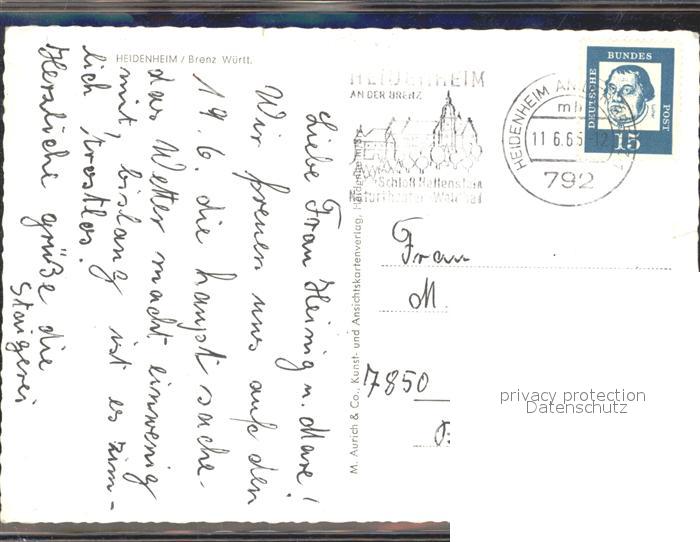 HEIDENHEIM / Brenz Württ.
Liebe Frau Heinig u. Mare!
Wir freuen uns auf den
19.6. die haupt sache
das Wetter macht einwenig
mit, bislang ist es zim-
lich trostlos.
Herzliche grüße die
M. Aurich & Co., Kunst- und Ansichtskartenverlag, Heidenheim
HEIDENHEIM
AN DER BRENZ
Schloß Hellenstein
Naturtheater
HEIDENHEIM AN
11.6.65-12
792
DEUTSCHE
BUNDES
POST
15
Frau
M.
7850
privacy protection
Datenschutz